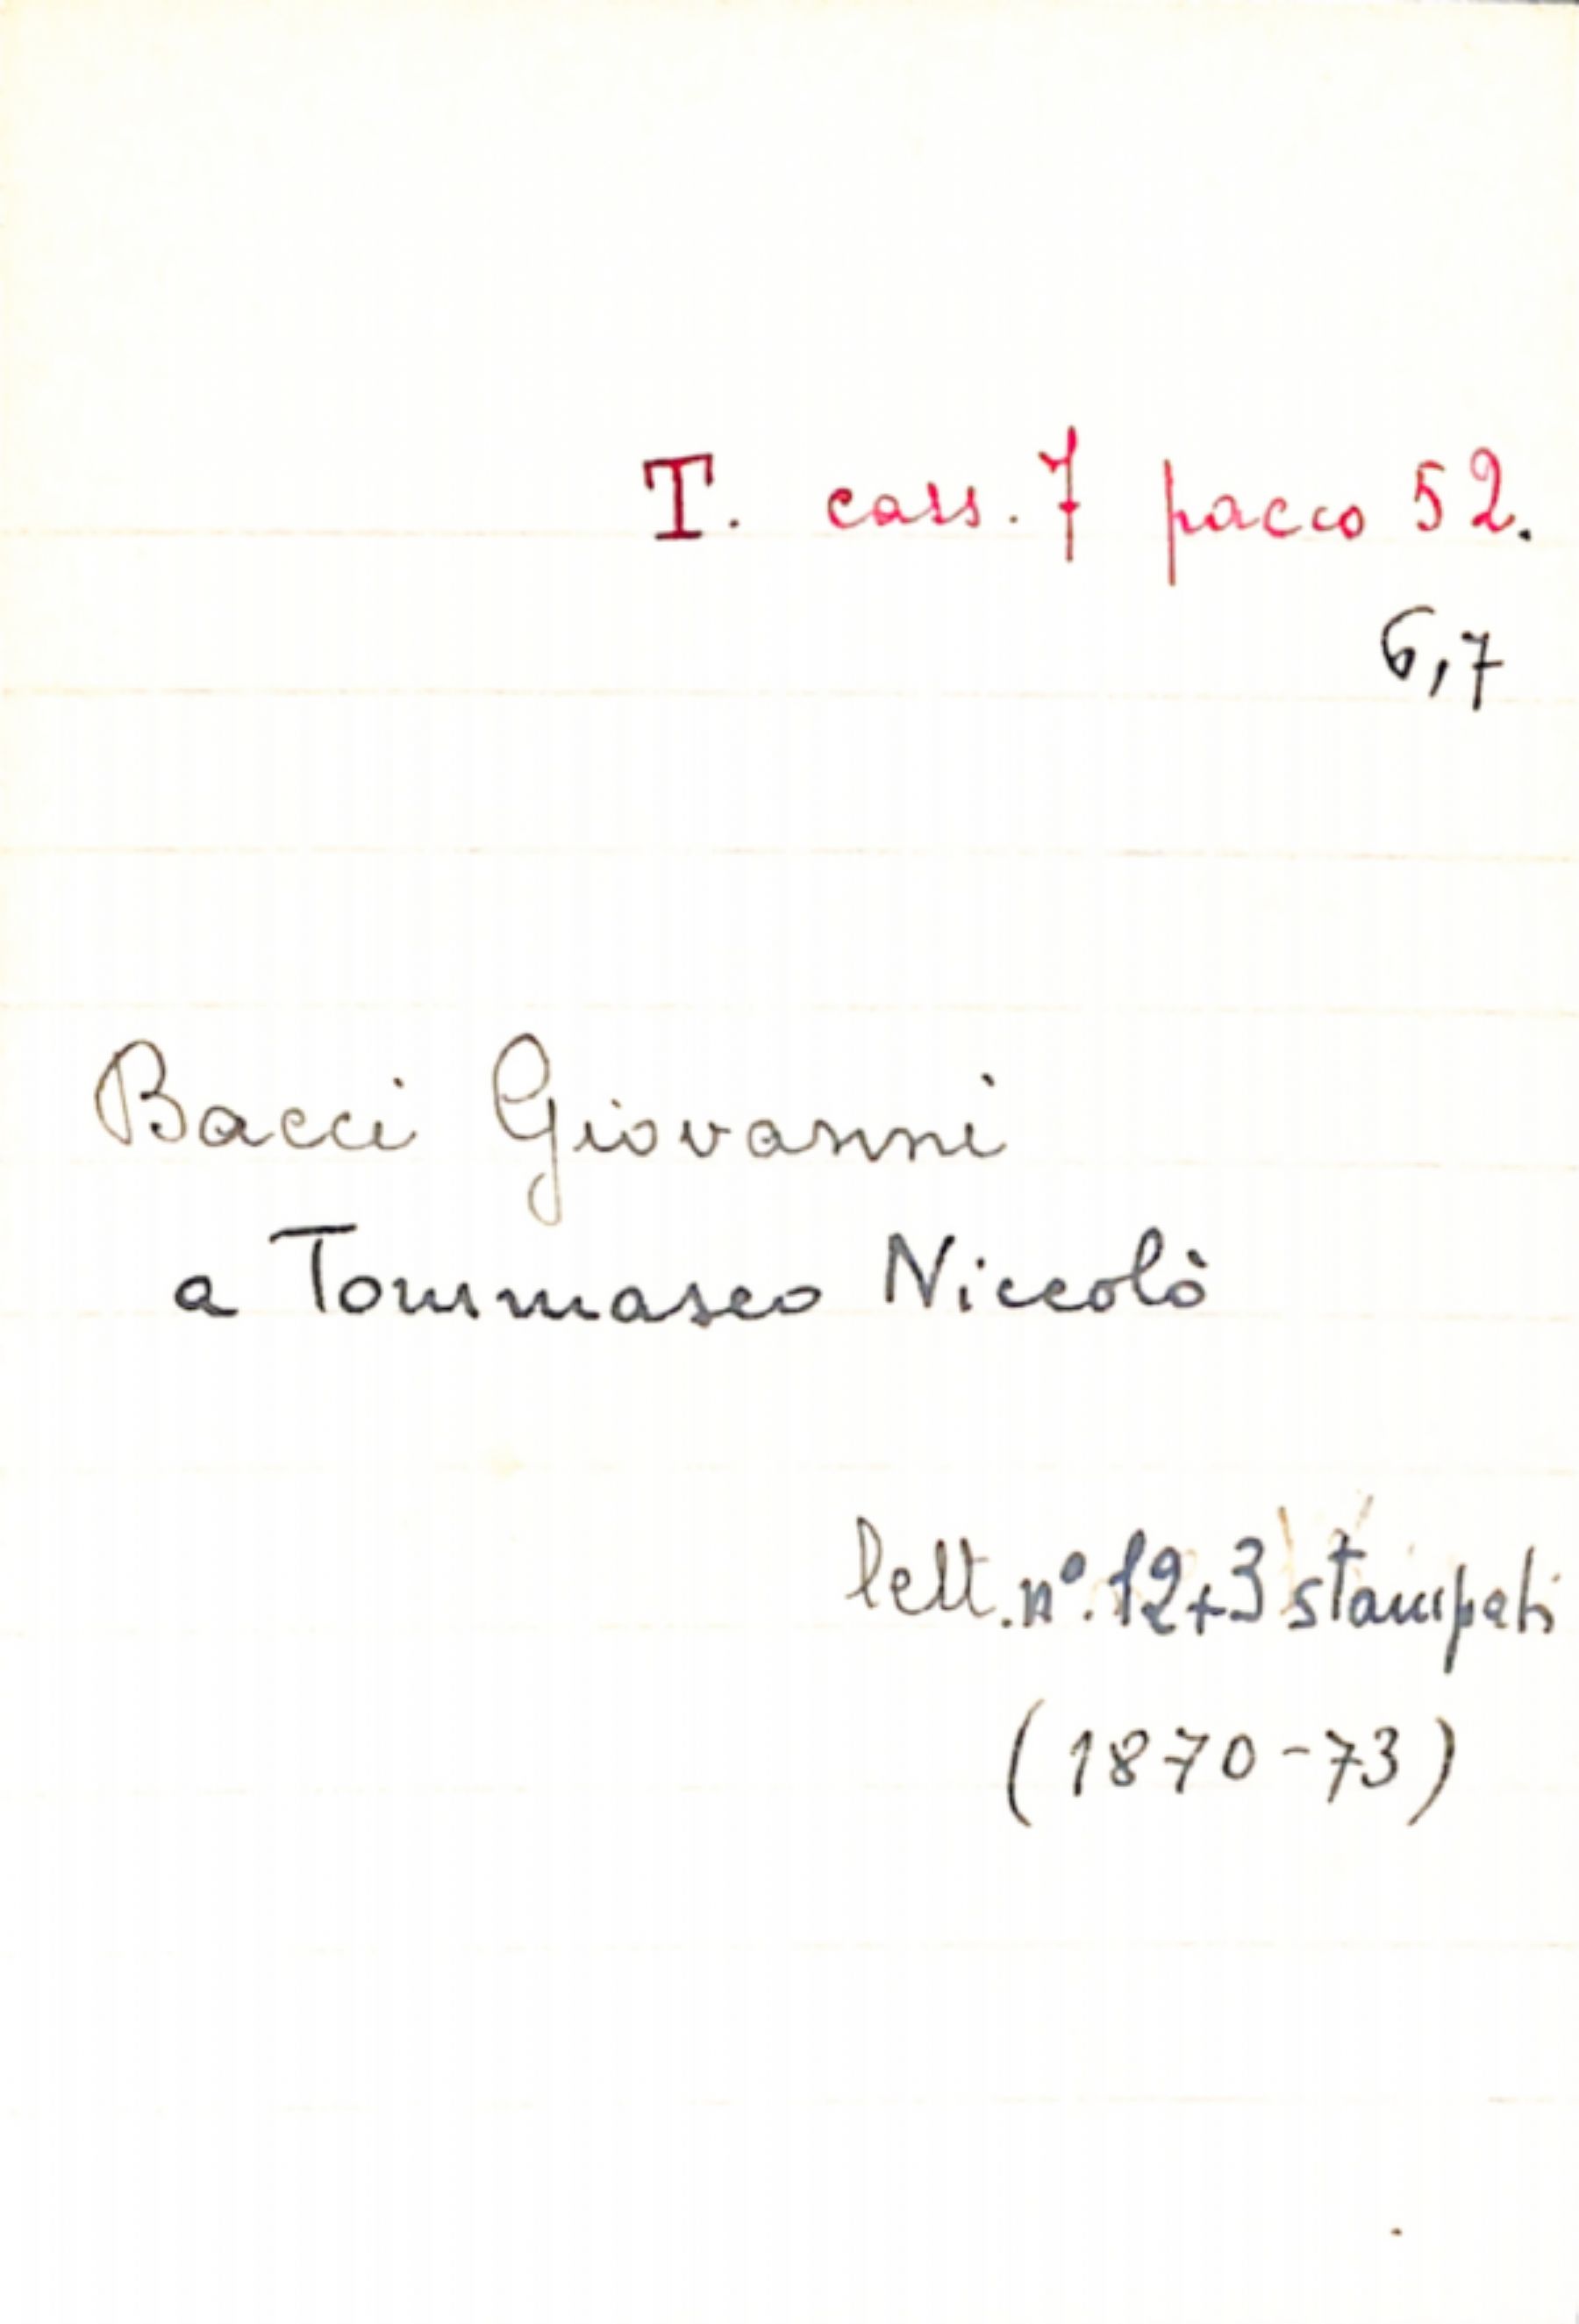 T. cass. 7 pacco 52.
6,7
Bacci Giovanni
a Tommaseo Niccolò
lett. nº. 12+3 stampati
(1870-73)